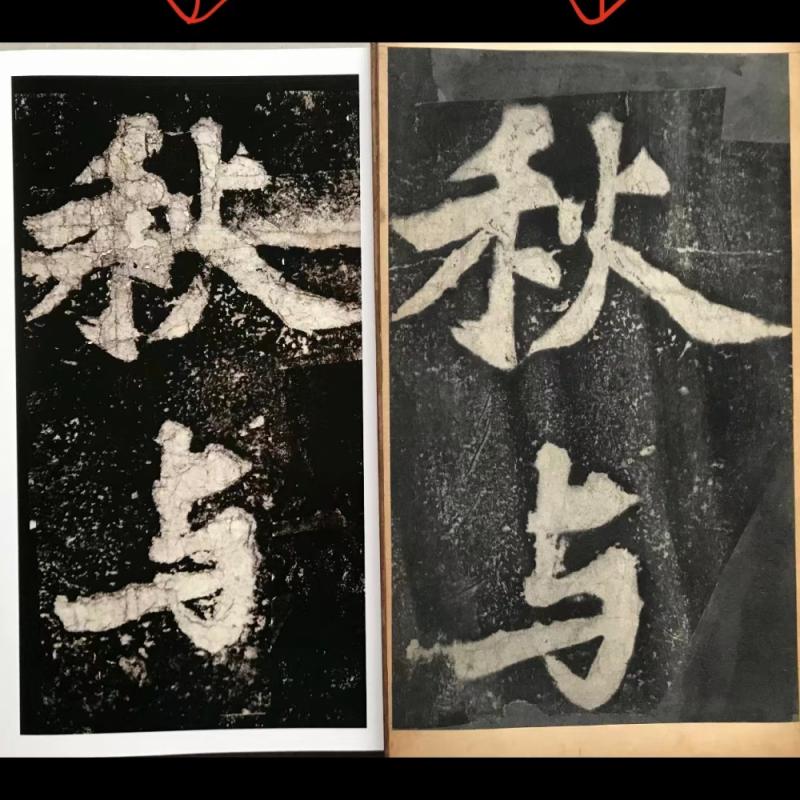 秋与
秋与